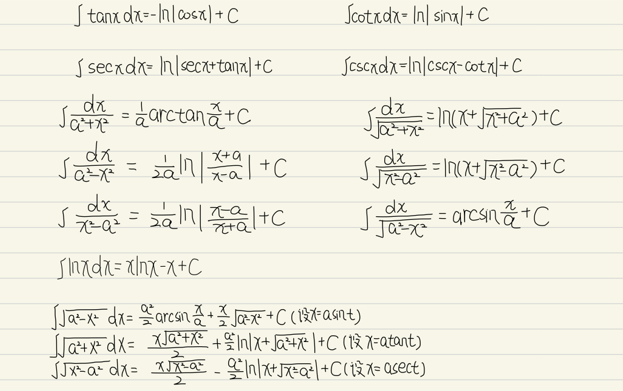 ∫tanxdx=-ln|cosx|+C ∫cotxdx=ln|sinx|+C
∫secxdx=ln|secx+tanx|+C ∫cscxdx=ln|cscx-cotx|+C
∫dx/(a²+x²) = (1/a)arctan(x/a)+C ∫dx/√(a²+x²) = ln(x+√(x²+a²))+C
∫dx/(a²-x²) = (1/2a)ln|(x+a)/(x-a)|+C ∫dx/√(x²-a²) = ln(x+√(x²-a²))+C
∫dx/(x²-a²) = (1/2a)ln|(x-a)/(x+a)|+C ∫dx/√(a²-x²) = arcsin(x/a)+C
∫lnxdx=xlnx-x+C
∫√(a²-x²)dx = (a²/2)arcsin(x/a)+(x/2)√(a²-x²)+C(设x=asint)
∫√(a²+x²)dx = x√(a²+x²)/2+(a²/2)ln|x+√(a²+x²)|+C(设x=atant)
∫√(x²-a²)dx = x√(x²-a²)/2-(a²/2)ln|x+√(x²-a²)|+C(设x=asect)